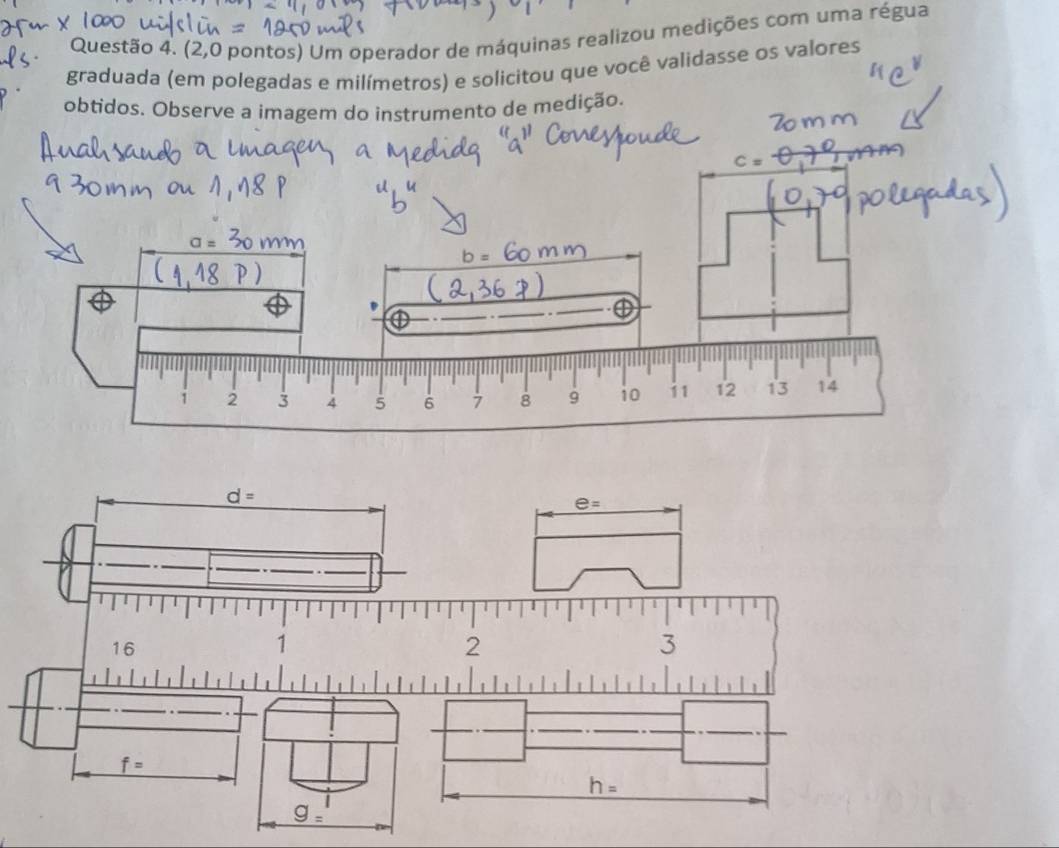 x 1000 = 1250 mils
Questão 4. (2,0 pontos) Um operador de máquinas realizou medições com uma régua
graduada (em polegadas e milímetros) e solicitou que você validasse os valores
obtidos. Observe a imagem do instrumento de medição.
Analisando a imagem a medida "a" Corresponde
a 30mm ou 1,18 P
"b"
20mm
c = 0,79 mm
(0,79 polegadas)
a = 30 mm
(1,18 P)
b = 60 mm
(2,36 P)
1 2 3 4 5 6 7 8 9 10 11 12 13 14
d =
e =
16 1 2 3
f =
g =
h =